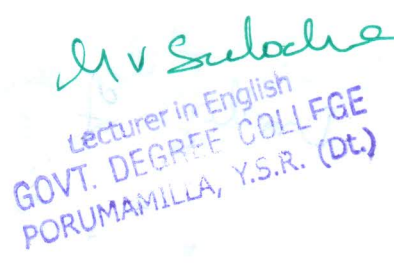 M V Sulocha
Lecturer in English
GOVT. DEGREE COLLEGE
PORUMAMILLA, Y.S.R. (Dt.)